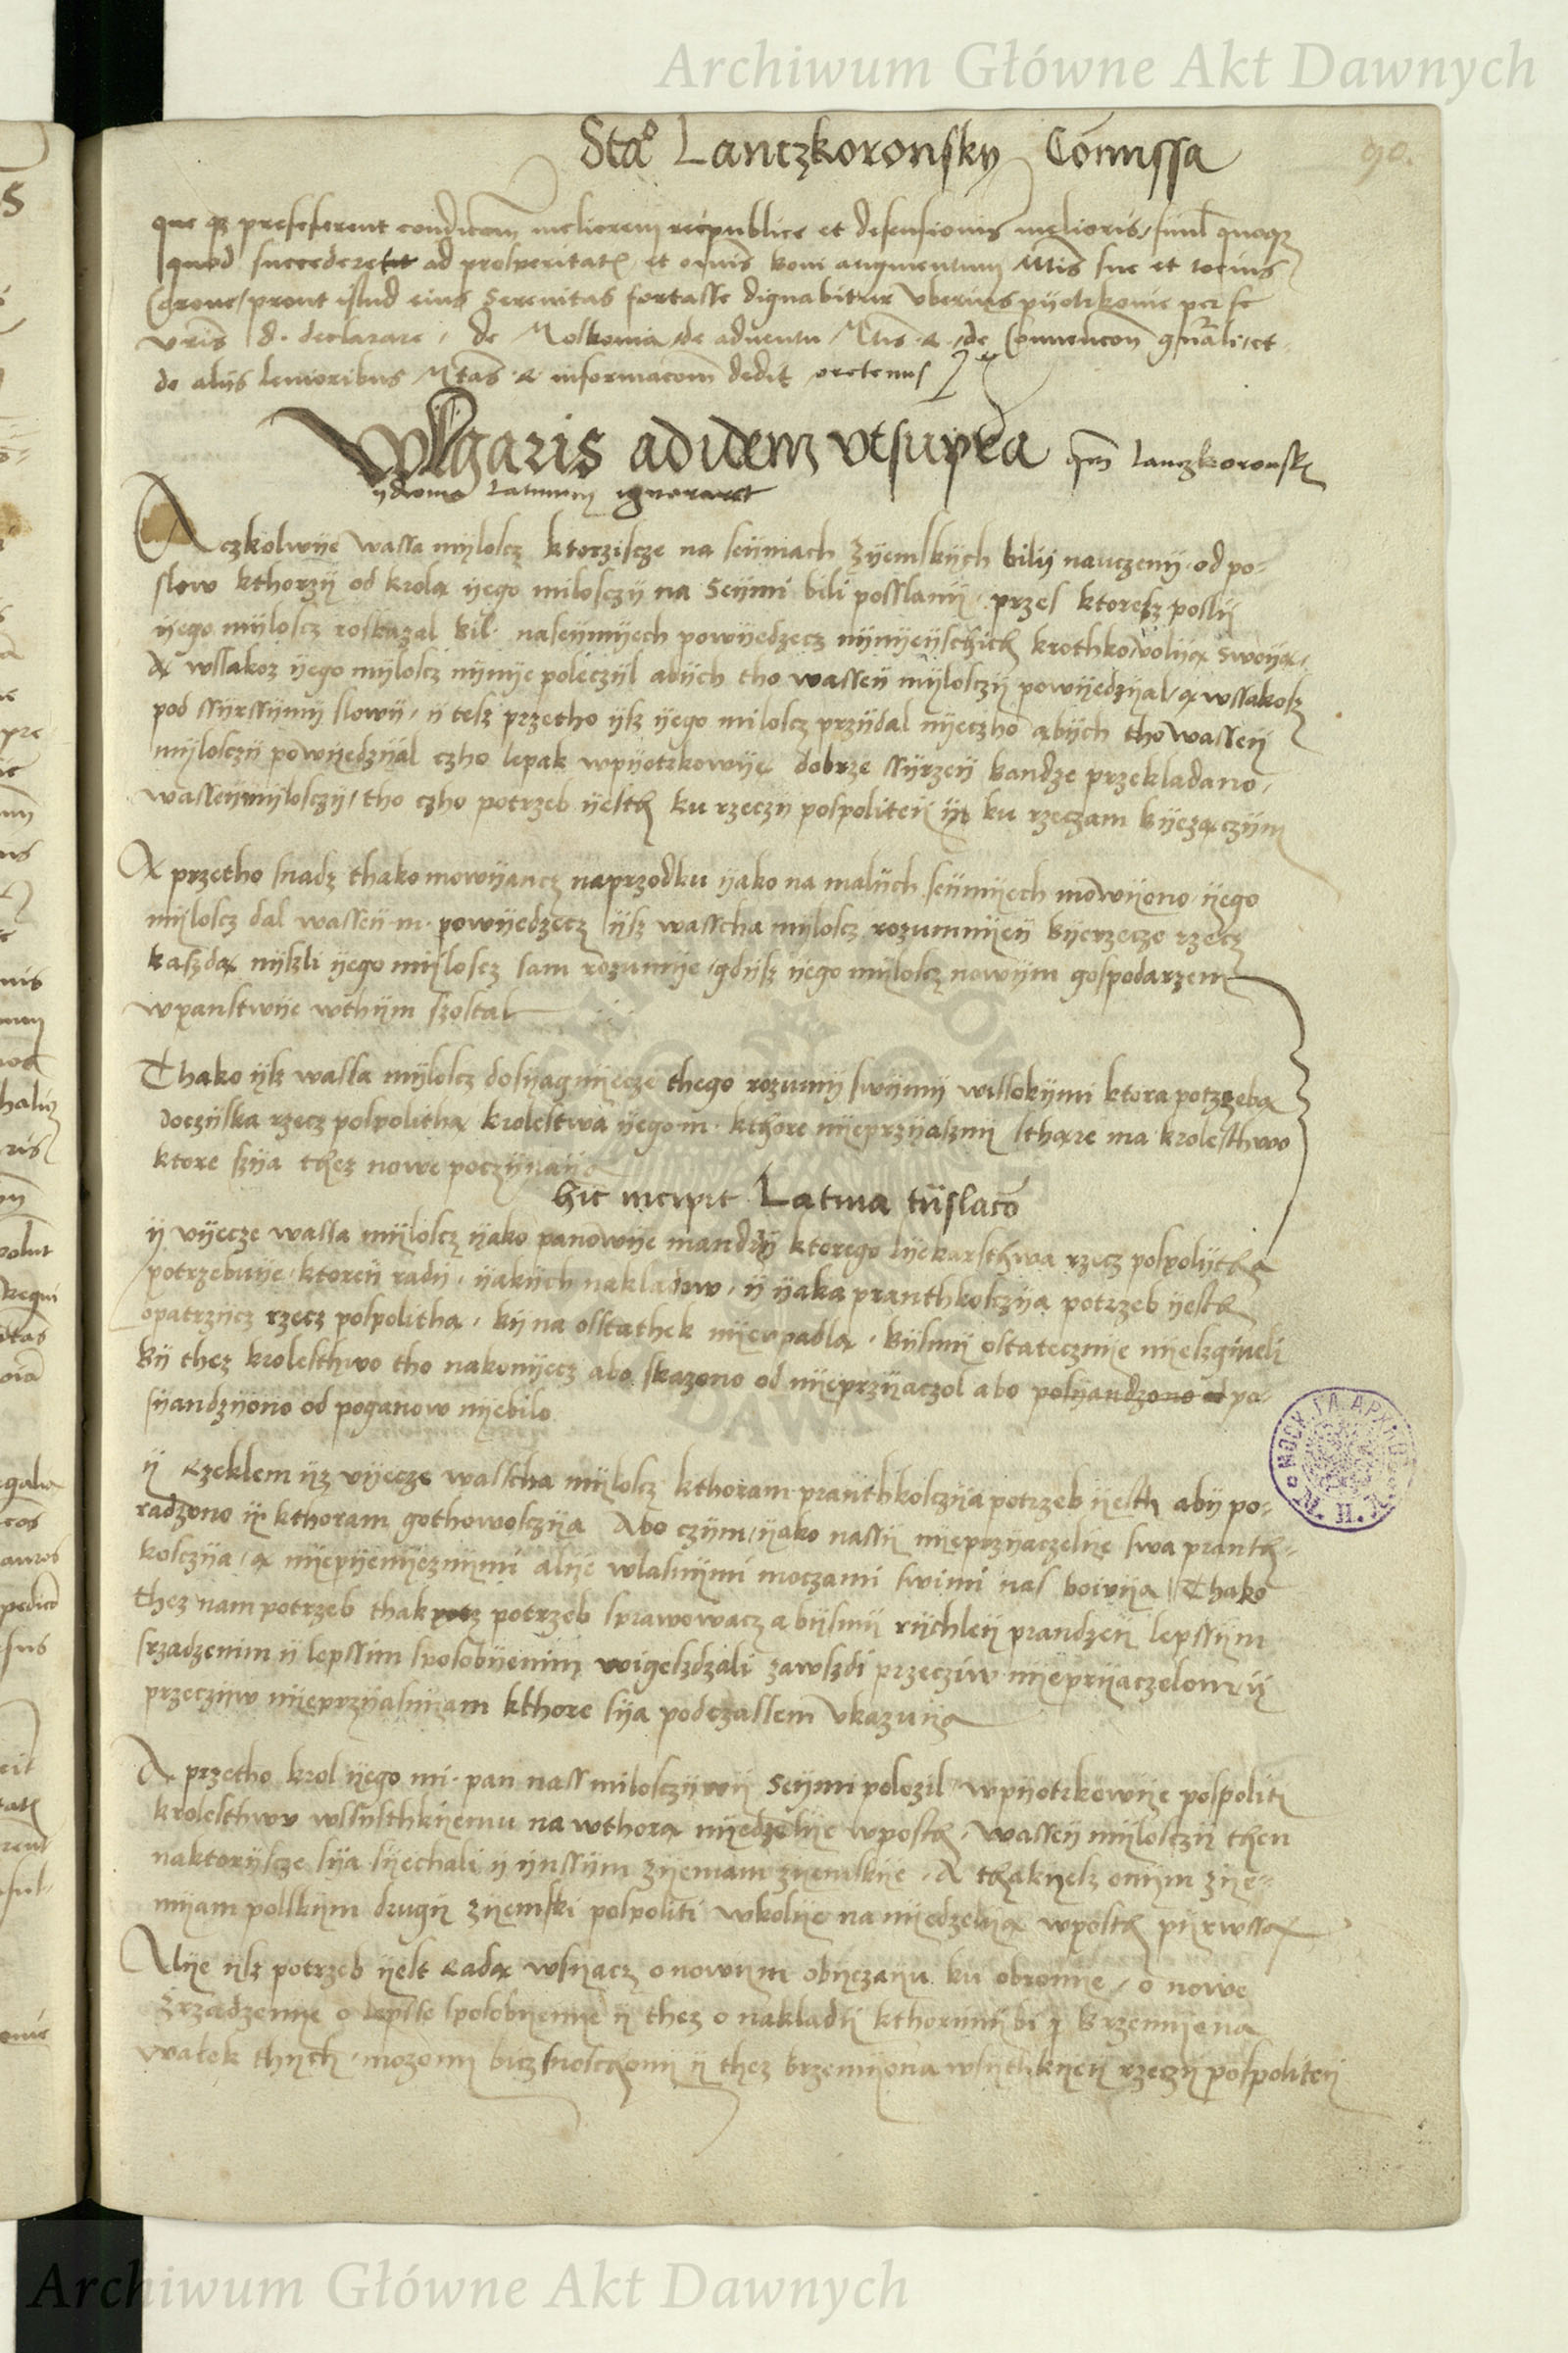 Archiwum Główne Akt Dawnych
Stao Lanczkoronsky Comissa
90.
que preseferent condicionem meliorem reipublice et defensionis melioris, simul quoque
quod succederet ad prosperitatem et omnis boni augmentum Mtis sue et tocius
Corone, prout istud eius Serenitas fortasse dignabitur uberius pyotrkovie per se
vris d. declarare, de Moskovia, de adventu Mtis R., de Convencione gnrali, et
de aliis levioribus Mtas R informacionem dedit oretenus
Vulgaris ad idem utsupra qm Lanczkoronsky
ydeoma Latinum ignoraret
Aczkolwye wassa myloscz ktorziscze na seymach zyemskych bily nauczeny od po-
slow kthorzy od krola yego milosczy na Seymi bili posslany, przes ktoresz posly
yego myloscz roskazal bil naseymyech powyedzecz nynyeyschich krothko volya swoya,
A wssakoz yego myloscz nynye poleczyl abych tho wassey mylosczy powyedzyal, a wssakosz
pod ssyrssymy slowy, y tesz przetho ysz yego milosc przydal nyeczho abych tho wassey
mylosczy powyedzyal czho lepak wpyotrkowye dobrze ssyrzey bandze przekladano,
wassey mylosczy, tho czho potrzeb yesth ku rzeczy pospolitey y ku rzeczam byezaczym
A przetho snadz thako mowyancz naprzodku yako na malych seymyech mowyono yego
mylosc dal wassey m. powyedzecz ysz wasscha mylosc rozummyey byerzecze rzecz
kaszda nyszli yego mylosc sam rozumye, gdysz yego mylosc nowym gospodarzem
wpanstwye wthym szostal
Thako ysz wassa mylosc dosyagnyecze thego rozumy swymy wissokymi ktora potrzeba
doczyska rzecz pospolitha krolestwa yego m. kthore nyeprzyaszny sthare ma krolesthwo
ktore szya thez nowe poczynaya
hic incipit Latina tnslaco
y vyecze wassa mylosc yako panowye mandry ktorego lyekarsthwa rzecz pospolytha
potrzebuye, ktorey rady, yakych nakladow, y yaka pranthkosczya potrzeb yesth
opatrzycz rzecz pospolitha, by na osstathek nyeupadla, bysmy ostatecznye nyeszgineli
by thez krolesthwo tho nakonyecz abo skazono od nyeprzyaczol abo posyandzono od po-
syandzyono od poganow nyebilo
y Rzeklem yz vyecze wasscha mylosc kthoram pranthkosczya potrzeb yesth aby po-
radzono y kthoram gothowosczya Abo czym, yako nassy nyeprzyaczelye swa pranth-
kosczya, a nyepyenyeznymi alye wlasnymi moczami swimi nas boivya, Thako
thez nam potrzeb thak potz potrzeb sprawowacz abysmy rychley prandzey lepssym
srzadzenim y lepssim sposobyenim wigeszdzali zawszdi przecziw nyepryaczelom y
przecziw nyeprzyasnyam kthore sya podczassem ukazuya
A przetho krol yego mi. pan nass milosczywy Seymi polozil wpyotrkowye pospoliti
krolesthwu wssysthkyemu na wthora nyedzelye wposth, wassey mylosczy then
naktoryscze sya syechali y ynssym zyemiam zyemskye, A thakyesz onym zye-
myam polskym drugy zyemski pospoliti wkolye na nyedzelya wposth pyrwssa
Alye ysz potrzeb yest Rada wsyacz o nowym obyczayu ku obronye, o nowe
srzadzenye o lepsse sposobyenye y thez o nakladi kthorimy bi y brzemyena
walek thych, mozony bicz snosczony y thez brzemyona wsythkyey rzeczy pospolitey
Archiwum Główne Akt Dawnych